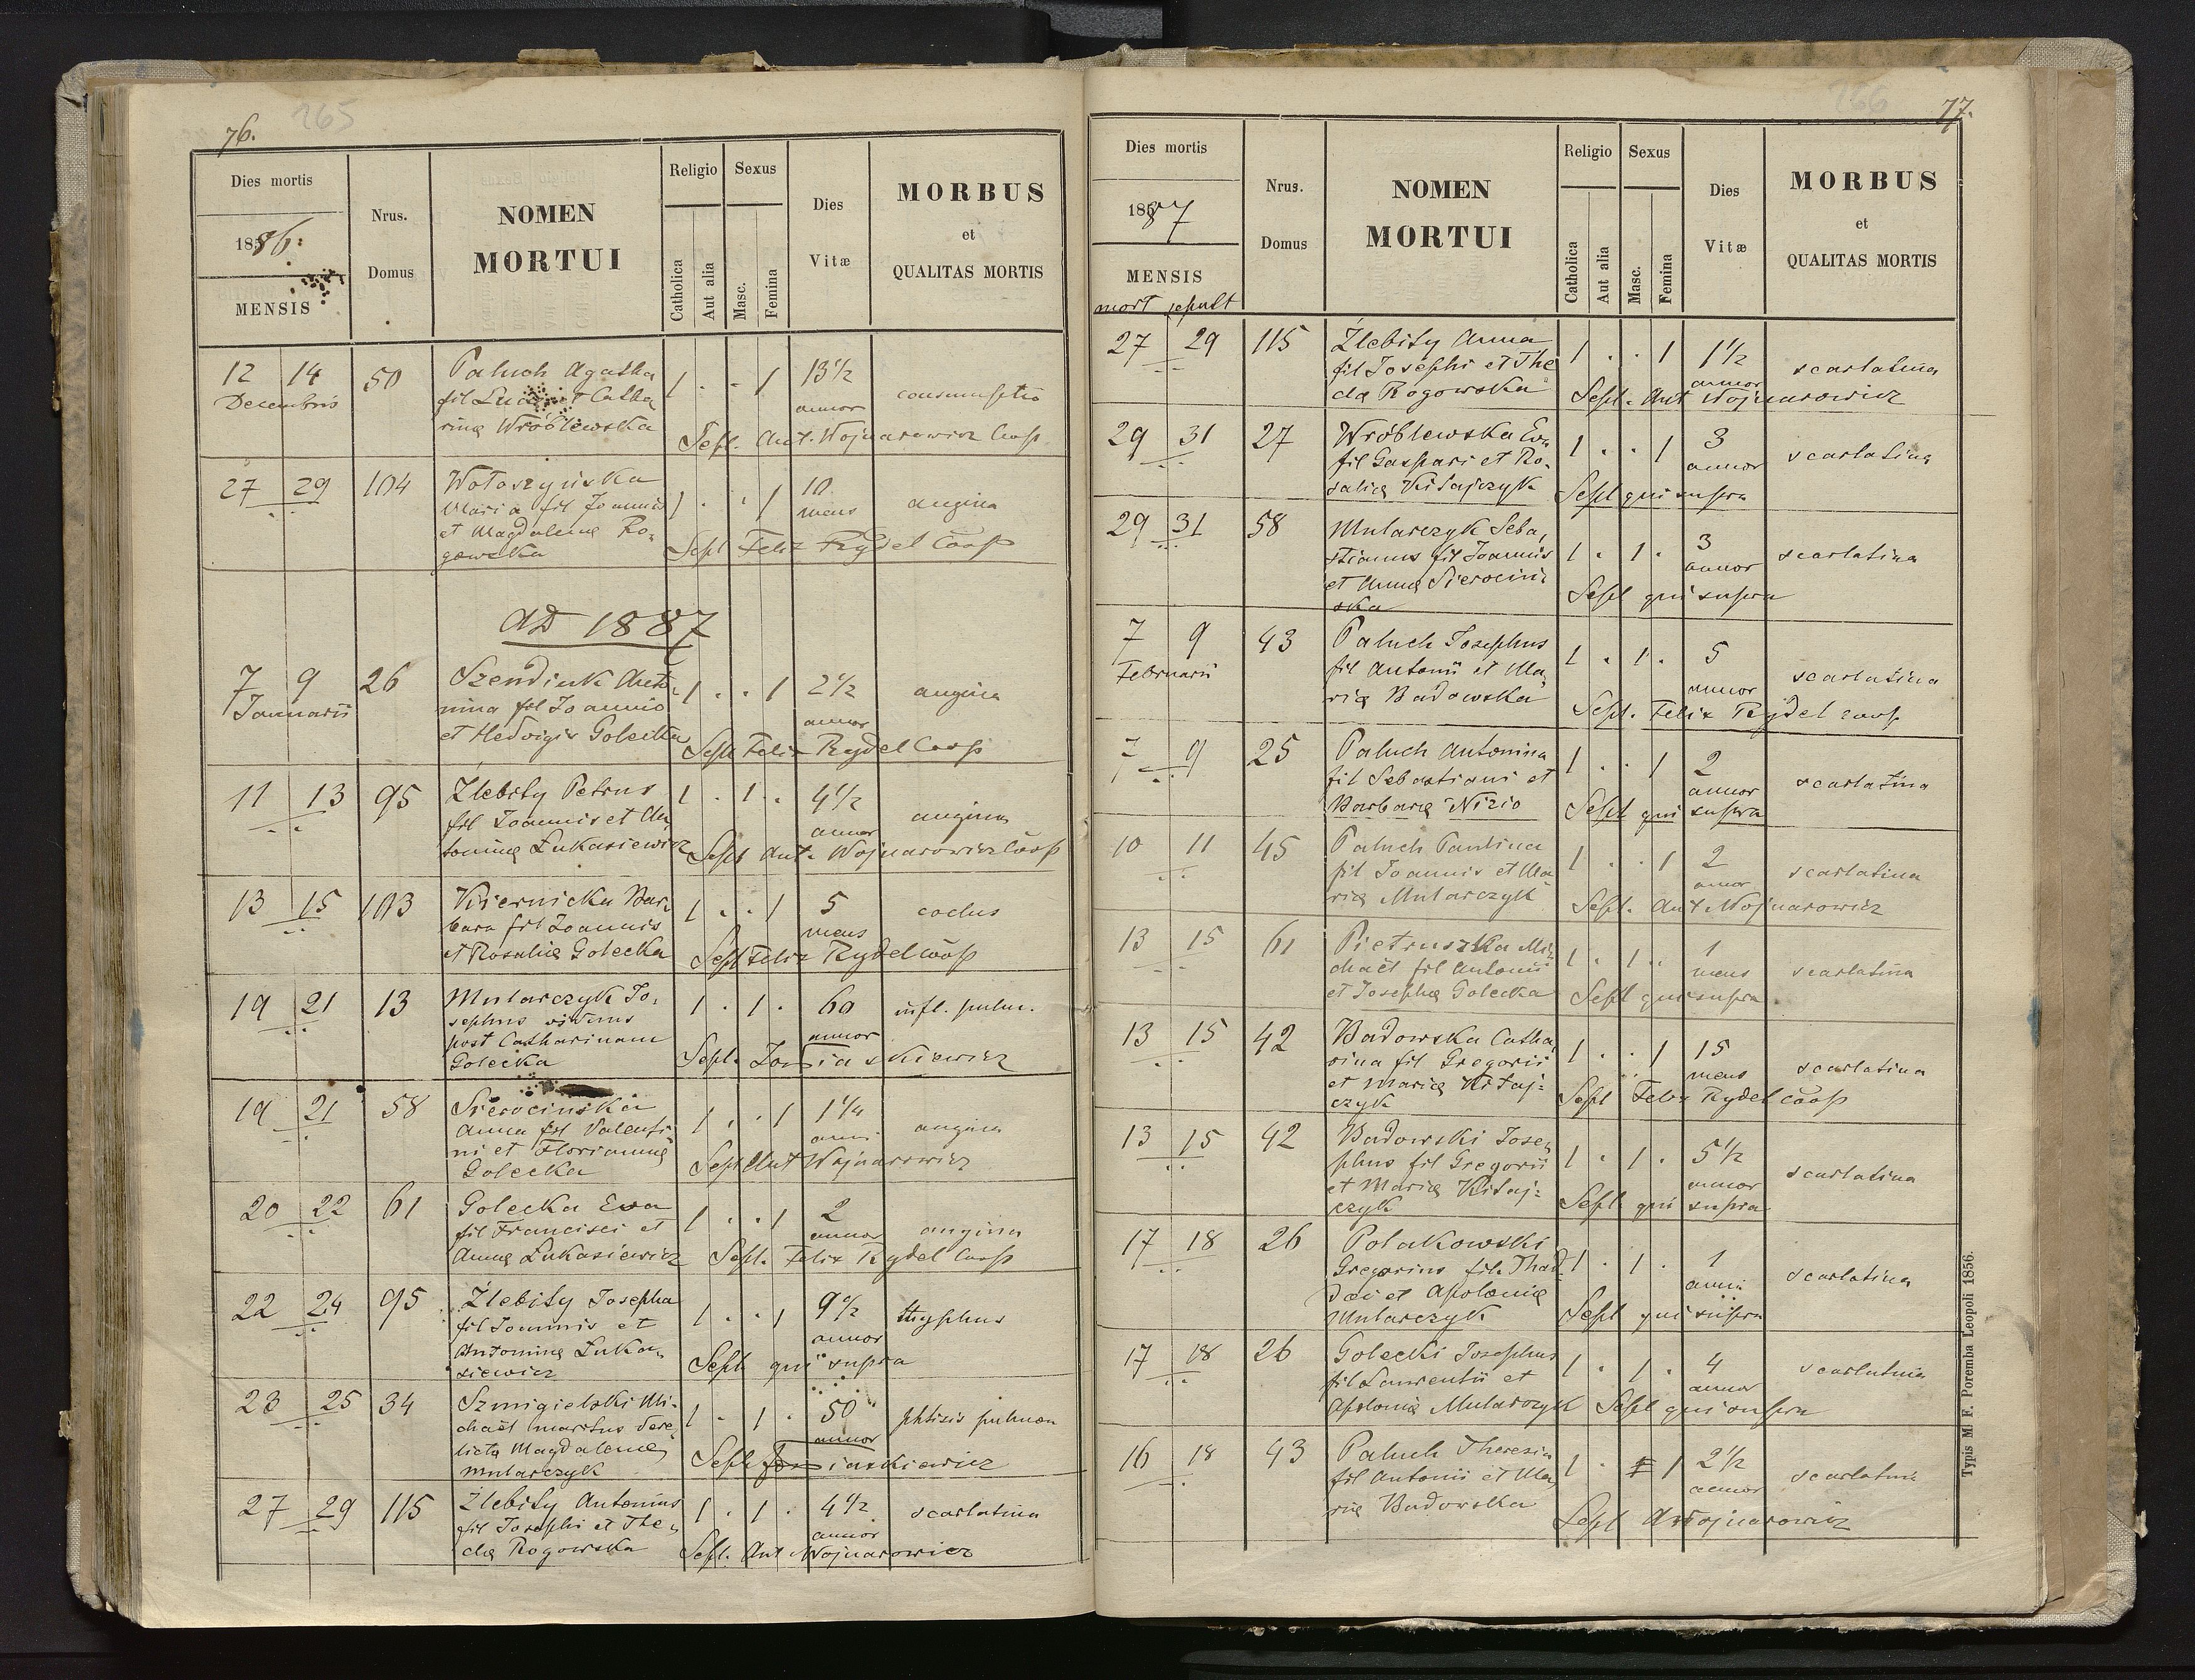 76. 265
Dies mortis
1886:
MENSIS
Nrus. Domus
NOMEN MORTUI
Religio Sexus
Catholica Aut alia Masc. Femina
Dies Vitæ
MORBUS
et
QUALITAS MORTIS
12 14 50 Paluch Agatha 1 . . 1 13½
Decembris fil Lucae et Catha annor consumptio
rinę Wróblewska Sepl. Ant. Wojnarowicz Coop
27 29 104 Wołoszyńska 10
Maria fil Joannis 1 . . 1 mens angina
et Magdalenę Ro,
gowska Sepl Felix Rydel Coop
AD 1887
7 9 26 Szendiuk Anto- 1 . . 1 2½ angina
Januarii nina fil Joannis annor
et Hedvigis Golecka Sepl Felix Rydel Coop
11 13 95 Źlebity Petrus 1 . 1 . 4½
fil Joannis et An annor angina
toninę Łukasiewicz Sepl Ant. Wojnarowicz Coop
13 15 103 Kiernicka Bar- 1 . . 1 5 coclus
bara fil Joannis mens
et Rosalię Golecka Sepl Felix Rydel coop
19 21 13 Mularczyk Jo, 1 . 1 . 60 infl. pulm.
sephus viduus
post Catharinam annor
Golecka Sepl. Jo iaskiewicz
19 21 58 Sierocinska 1 . . 1 1¼
Anna fil Valenti anni angina
ni et Floriannę
Golecka Sepl Ant Wojnarowicz
20 22 61 Golecka Ewa 1 . . 1 2
fil Francisci et annor angina
Annę Łukasiewicz Sepl. Felix Rydel Coop
22 24 95 Źlebity Josepha 1 . . 1 9½ thyphus
fil Joannis et annor
Antoninę Łuka,
siewicz Sepl qui supra
23 25 34 Szmigielski Mi- 1 . 1 . 50 phtisis pulmon
chaël maritus dere,
lictę Magdalenę annor
Mularczyk Sepl Jo iaskiewicz
27 29 115 Źlebity Antonius 1 . 1 . 4½ scarlatina
fil Josephi et The, annor
clę Rogowska Sepl. Ant Wojnarowicz
266 77.
Dies mortis
1887
MENSIS
mort sepult
Nrus. Domus
NOMEN MORTUI
Religio Sexus
Catholica Aut alia Masc. Femina
Dies Vitæ
MORBUS
et
QUALITAS MORTIS
27 29 115 Źlebity Anna 1 . . 1 1½ scarlatina
fil Josephi et The annor
clę Rogowska Sepl. Ant Wojnarowicz
29 31 27 Wróblewska Ew, 1 . . 1 3
fil Gaspari et Ro- annor scarlatina
salię Kitajczyk Sepl qui supra
29 31 58 Mularczyk Seba, 1 . 1 . 3
stianus fil Joannis annor scarlatina
et Annę Sierocin-
ska Sepl qui supra
7 9 43 Paluch Josephus 1 . 1 . 5
Februarii fil Antonii et Ma, annor scarlatina
rię Badowska Sepl. Felix Rydel coop
7 9 25 Paluch Antonina 1 . . 1 2
fil Sebastiani et annor scarlatina
Barbarę Nizio Sepl qui supra
10 11 45 Paluch Paulina 1 . . 1 2
fil Joannis et Ma annor scarlatina
rię Mularczyk Sepl. Ant Wojnarowicz
13 15 61 Pietruszka Mi, 1 . 1 . 1
chaël fil Antonii mens scarlatina
et Josephę Golecka Sepl qui supra
13 15 42 Badowska Catha, 1 . . 1 15
rina fil Gregorii mens scarlatina
et Marię Kitaj-
czyk Sepl Felix Rydel coop
13 15 42 Badowski Jose, 1 . 1 . 5½
phus fil Gregorii
et Marię Kitaj- annor scarlatina
czyk Sepl qui supra
17 18 26 Polakowski 1 . 1 . 1
Gregorius fil. Thad anni scarlatina
daei et Apolonię
Mularczyk Sepl qui supra
17 18 26 Golecki Josephus 1 . 1 . 4 scarlatina
fil Laurentii et annor
Apolonię Mularczyk Sepl qui supra
16 18 43 Paluch Theresia 1 . 1 2½
fil Antonii et Ma annor scarlatina
rię Badowska Sepl Ant Wojnarowicz
Typis M. F. Poremba Leopoli 1856.